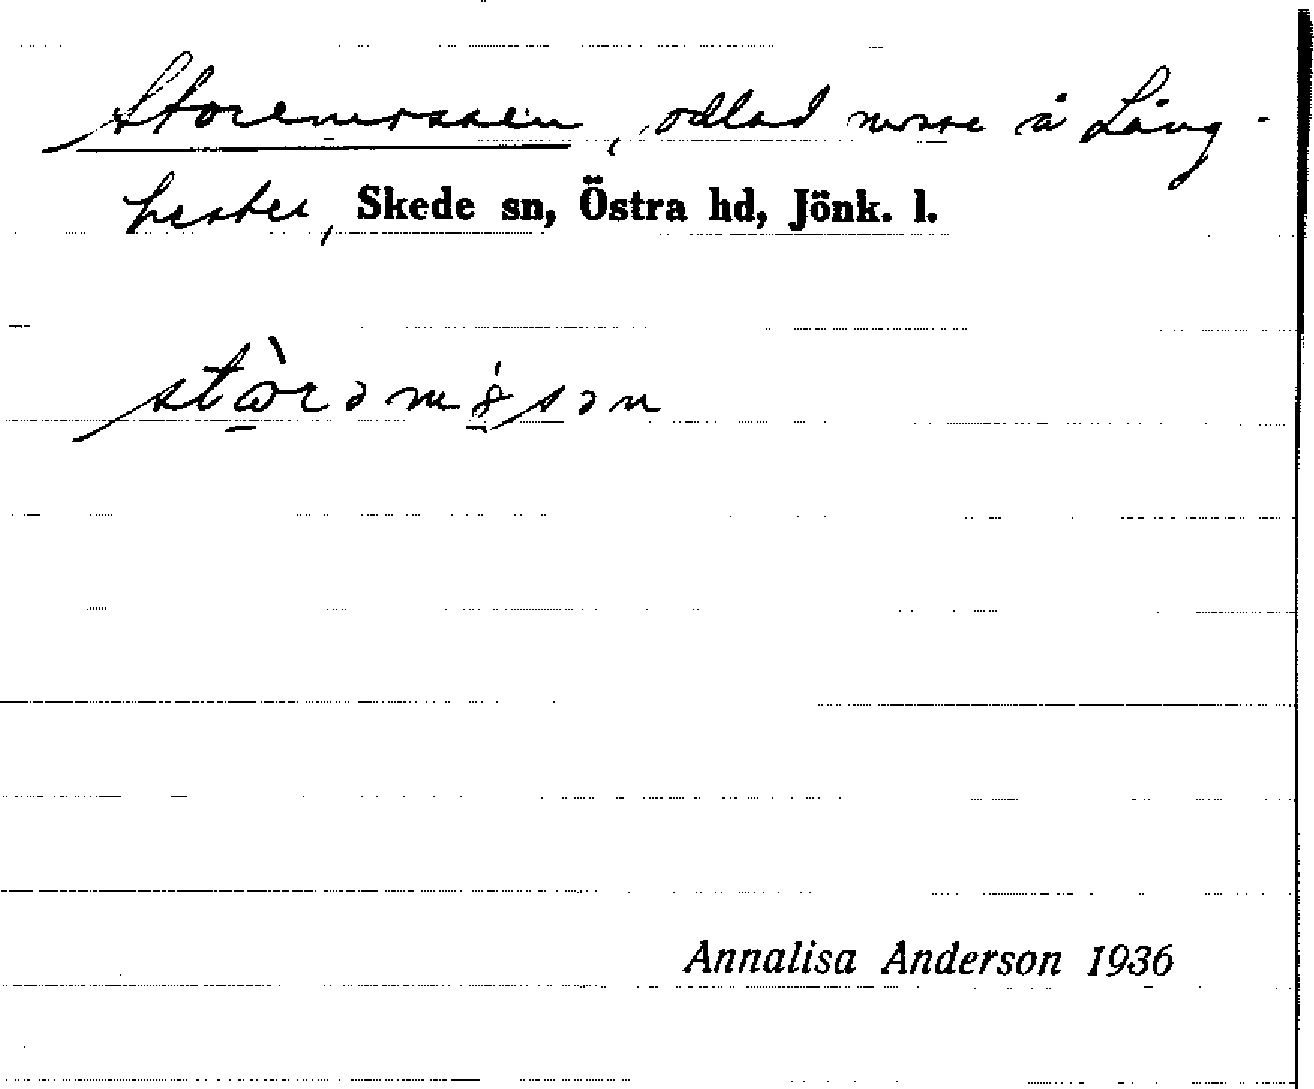 Storemossen, odlad mosse å Lång-
hester, Skede sn, Östra hd, Jönk. l.
Annalisa Anderson 1936